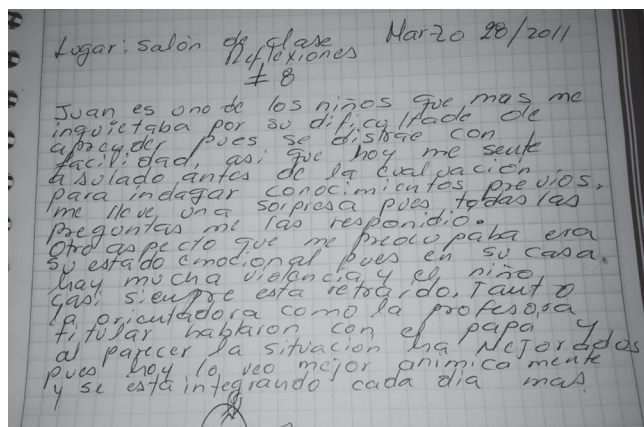 Lugar: Salón de clase Marzo 28/2011
Reflexiones
# 8
Juan es uno de los niños que mas me
inquietaba por su dificultade de
aprender pues se distrae con
facilidad, asi que hoy me sente
a su lado antes de la evaluación
para indagar conocimientos previos,
me lleve una sorpresa pues todas las
preguntas me las respondio.
Otro aspecto que me preocupaba era
su estado emocional pues en su casa
hay mucha violencia y el niño
casi siempre esta retraido, Tanto
la orientadora como la profesora
titular hablaron con el papa y
al parecer la situación ha mejorados
pues hoy lo veo mejor animicamente
y se esta integrando cada dia mas.